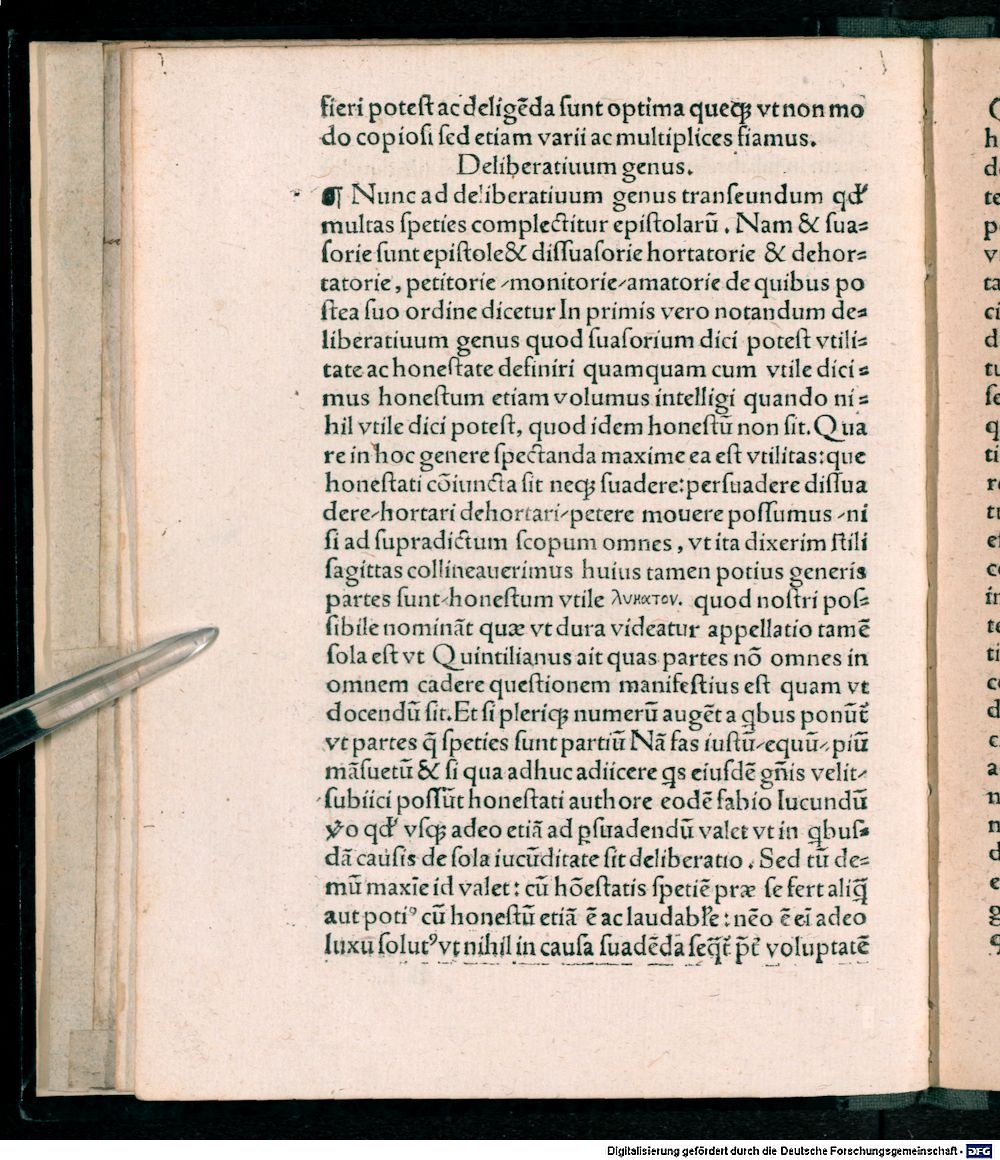 fieri poteſt ac deligẽda ſunt optima queqꝫ vt non mo
do copioſi ſed etiam varii ac multiplices fiamus.
Deliberatiuum genus.
¶ Nunc ad deliberatiuum genus tranſeundum qđ
multas ſpeties complectitur epiſtolarũ . Nam & ſua⸗
ſorie ſunt epiſtole& diſſuaſorie hortatorie & dehor⸗
tatorie, petitorie ⸝monitorie⸝amatorie de quibus po
ſtea ſuo ordine dicetur In primis vero notandum de⸗
liberatiuum genus quod ſuaſorium dici poteſt vtili⸗
tate ac honeſtate definiri quamquam cum vtile dici⸗
mus honeſtum etiam volumus intelligi quando ni⸗
hil vtile dici poteſt, quod idem honeſtũ non ſit. Qua
re in hoc genere ſpectanda maxime ea eſt vtilitas: que
honeſtati cõiuncta ſit neqꝫ ſuadere: perſuadere diſſua
dere⸝hortari dehortari⸝petere mouere poſſumus ⸝ni
ſi ad ſupradictum ſcopum omnes, vt ita dixerim ſtili
ſagittas collineauerimus huius tamen potius generis
partes ſunt⸝honeſtum vtile λυνατον. quod noſtri poſ⸗
ſibile nominãt quæ vt dura videatur appellatio tamẽ
ſola eſt vt Quintilianus ait quas partes nõ omnes in
omnem cadere queſtionem manifeſtius eſt quam vt
docendũ ſit. Et ſi pleriqꝫ numerũ augẽt a qbus ponũt̃
vt partes q̃ ſpeties ſunt partiũ Nã fas iuſtũ⸝equũ⸝piũ
mãſuetũ & ſi qua adhuc adiicere qs eiuſdẽ gñis velit⸝
ſubiici poſſũt honeſtati authore eodẽ fabio Iucundũ
v̊o qđ vſqꝫ adeo etiã ad ꝑſuadendũ valet vt in qbuſ⸗
dã cauſis de ſola iucũditate ſit deliberatio. Sed tũ de⸗
mũ maxĩe id valet: cũ hõeſtatis ſpetiẽ præ ſe fert aliq̃
aut potiꝰ cũ honeſtũ etiã ẽ ac laudabłe: nẽo ẽ eĩ adeo
luxu ſolutꝰ vt nihil in cauſa ſuadẽda ſeq̃t̃ p̃t̃ voluptatẽ
Digitalisierung gefördert durch die Deutsche Forschungsgemeinschaft - DFG